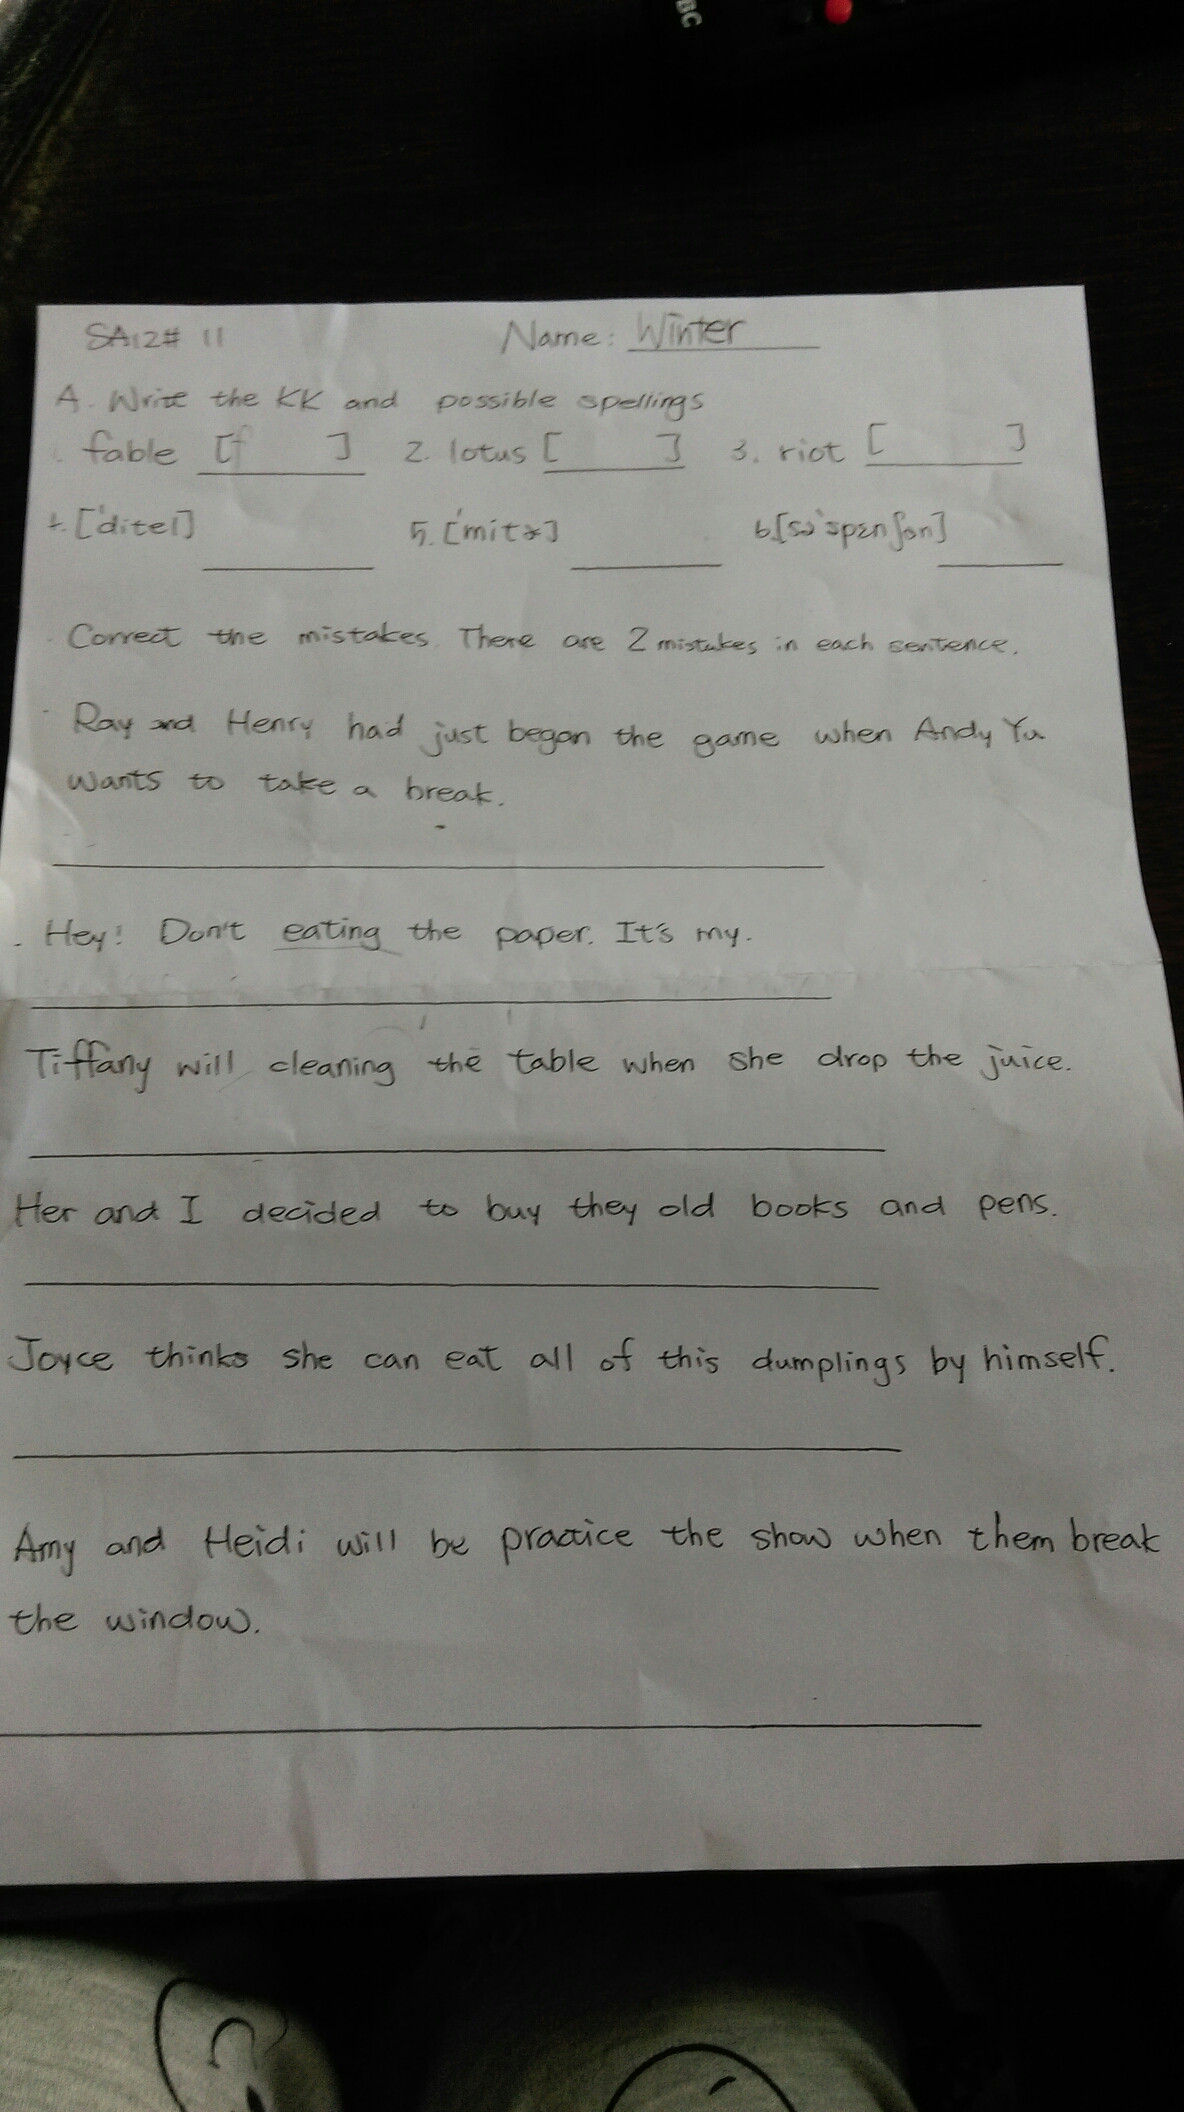 BC
SA12# 11 Name: Winter
A. Write the KK and possible spellings
. fable [f ] 2. lotus [ ] 3. riot [ ]
['ditel] 5. ['mitɚ] 6.[sə'spɛnʃən]
Correct the mistakes. There are 2 mistakes in each sentence.
Ray and Henry had just began the game when Andy Yu
wants to take a break.
Hey! Don't eating the paper. It's my.
Tiffany will cleaning the table when she drop the juice.
Her and I decided to buy they old books and pens.
Joyce thinks she can eat all of this dumplings by himself.
Amy and Heidi will be practice the show when them break
the window.